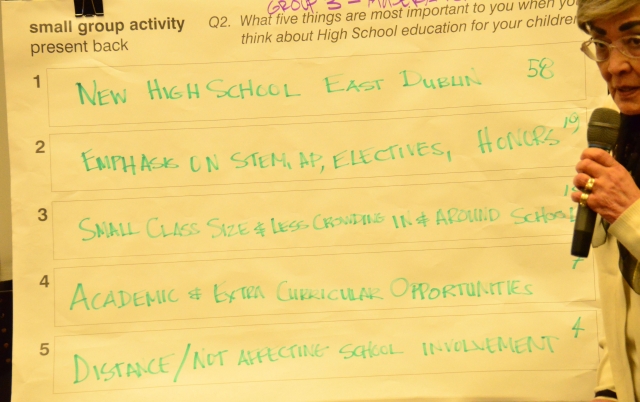 GROUP 3 -
small group activity
present back
Q2. What five things are most important to you when you
think about High School education for your children
1 NEW HIGH SCHOOL EAST DUBLIN 58
2 EMPHASIS ON STEM, AP, ELECTIVES, HONORS 19
3 SMALL CLASS SIZE & LESS CROWDING IN & AROUND SCHOOL
4 ACADEMIC & EXTRA CURRICULAR OPPORTUNITIES 7
5 DISTANCE/NOT AFFECTING SCHOOL INVOLVEMENT 4